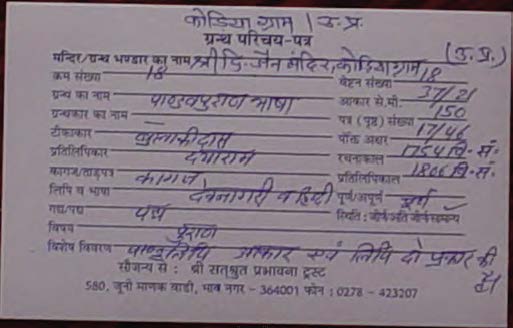 कोडिया ग्राम । उ.प्र.
ग्रन्थ परिचय-पत्र
मन्दिर/ग्रन्थ भण्डार का नाम श्री दि. जैन मंदिर, कोडिया ग्राम (उ.प्र.)
क्रम संख्या 18 वेष्टन संख्या 18
ग्रन्थ का नाम पाण्डवपुराण भाषा आकार से.मी. 37/21
ग्रन्थकार का नाम — पत्र (पृष्ठ) संख्या 150
टीकाकार बुलाकीदास पंक्ति अक्षर 17/46
प्रतिलिपिकार दयाराम रचनाकाल 1754 वि. सं.
कागज/ताड़पत्र कागज प्रतिलिपिकाल 1806 वि. सं.
लिपि व भाषा देवनागरी व हिन्दी पूर्ण/अपूर्ण पूर्ण
गद्य/पद्य पद्य स्थिति : जीर्ण/अति जीर्ण/सामान्य ✓
विषय पुराण
विशेष विवरण पाण्डुलिपि आकार एवं लिपि दो प्रकार की है।
सौजन्य से : श्री सत्श्रुत प्रभावना ट्रस्ट
580, जूनी माणक वाडी, भाव नगर - 364001 फोन : 0278 - 423207